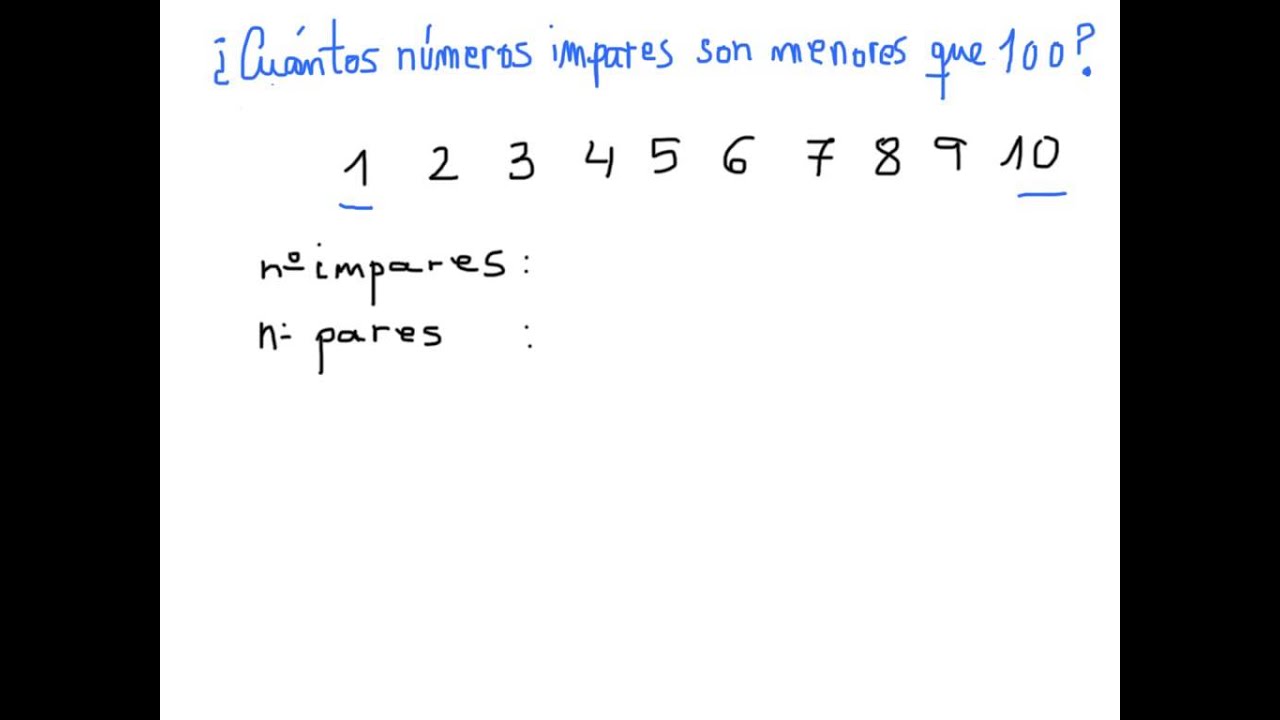 ¿Cuántos números impares son menores que 100?
1 2 3 4 5 6 7 8 9 10
nº impares :
nº pares :